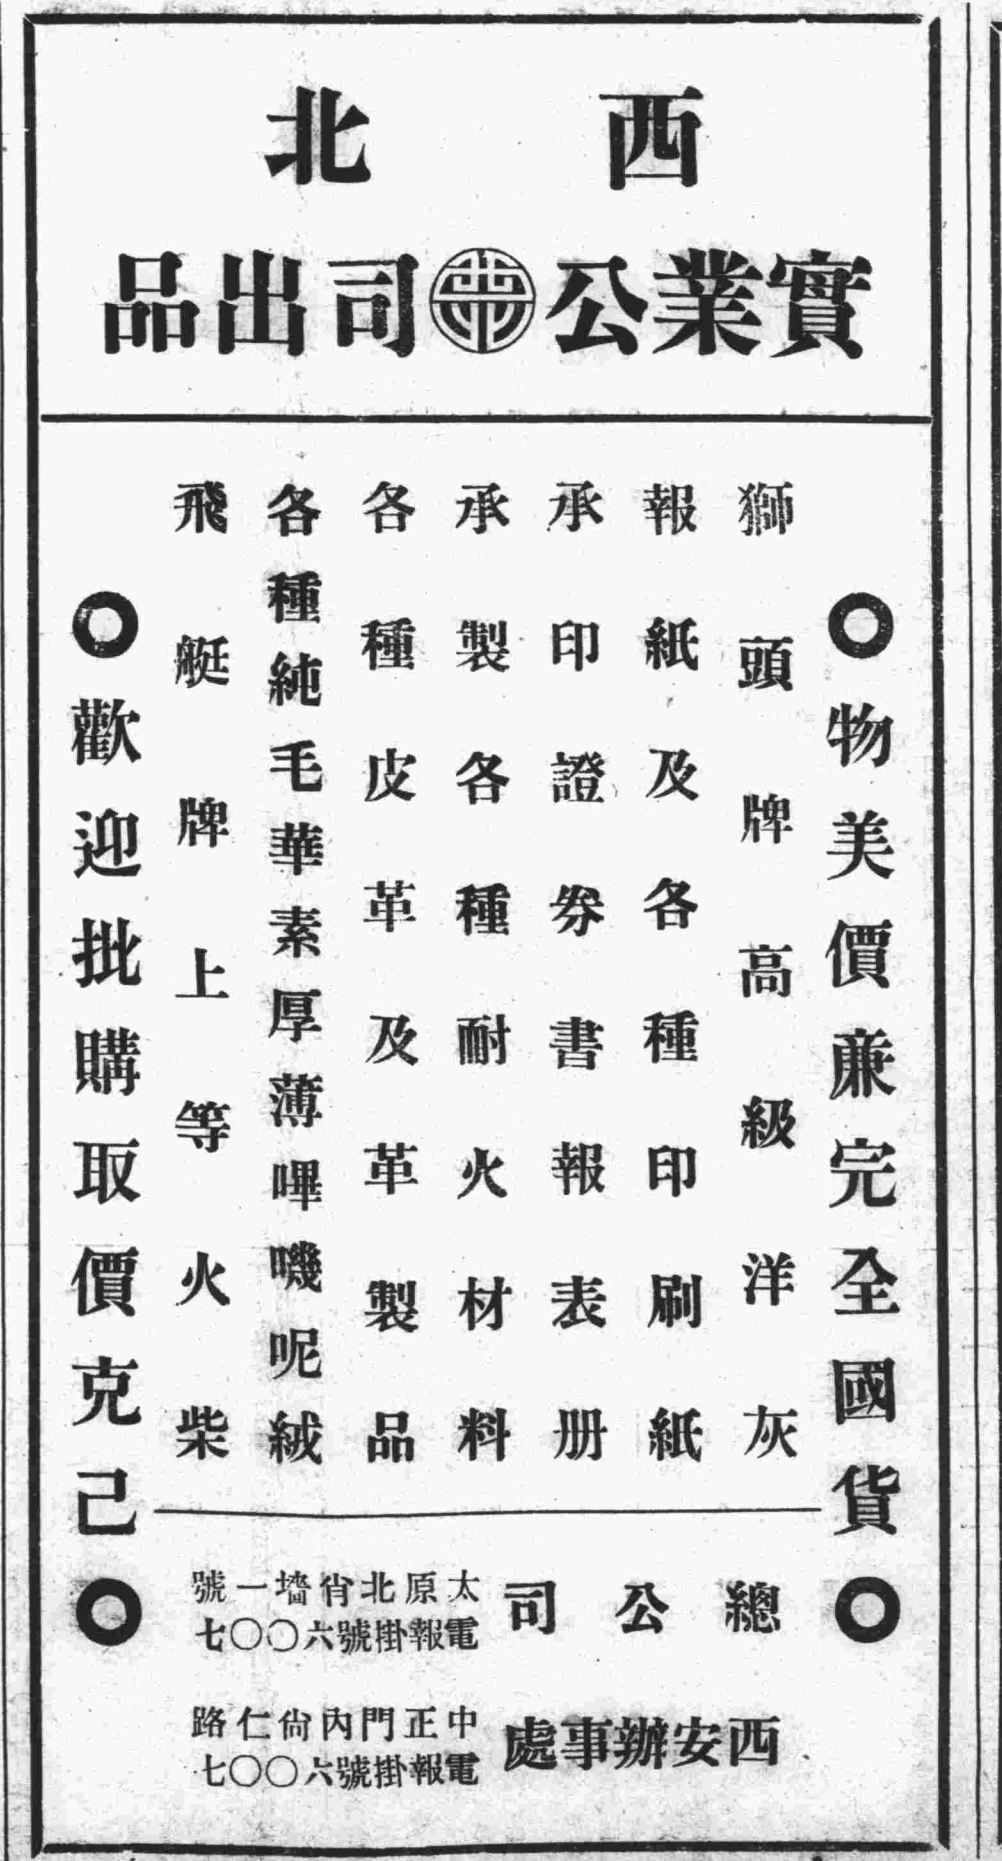 西北
實業公司出品
物美價廉完全國貨
獅頭牌高級洋灰
報紙及各種印刷紙
承印證券書報表册
承製各種耐火材料
各種皮革及革製品
各種純毛華素厚薄嗶嘰呢絨
飛艇牌上等火柴
歡迎批購取價克己
總公司
太原北肖墻一號
電報掛號六〇〇七
西安辦事處
中正門內尙仁路
電報掛號六〇〇七